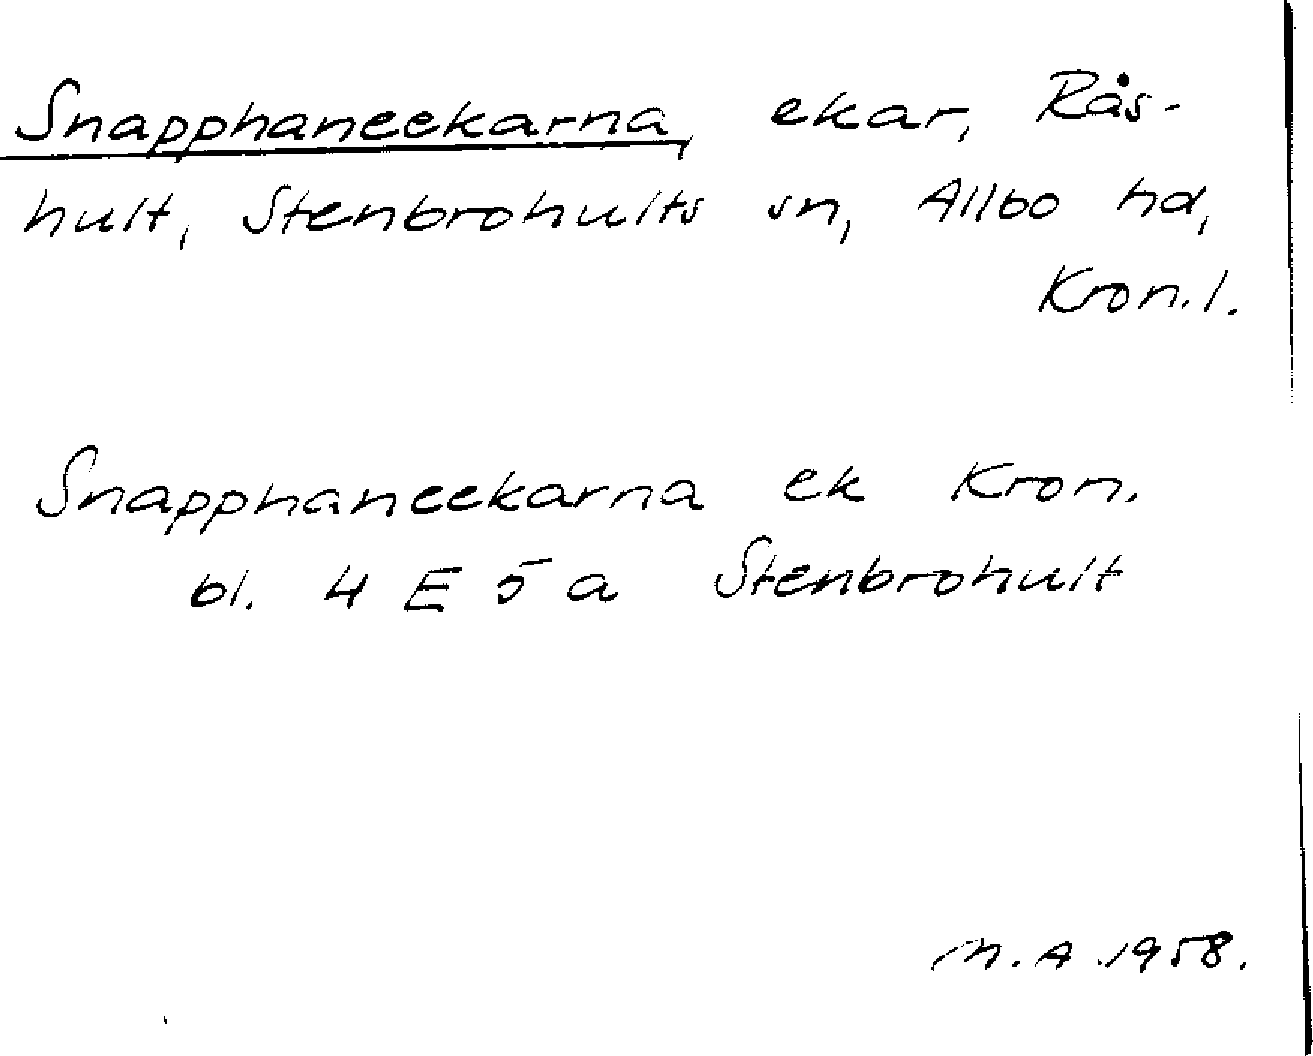 Snapphaneekarna, ekar, Rås-
hult, Stenbrohults sn, Allbo hd,
Kron.l.
Snapphaneekarna ek Kron.
bl. 4 E 5 a Stenbrohult
M.A.1958.